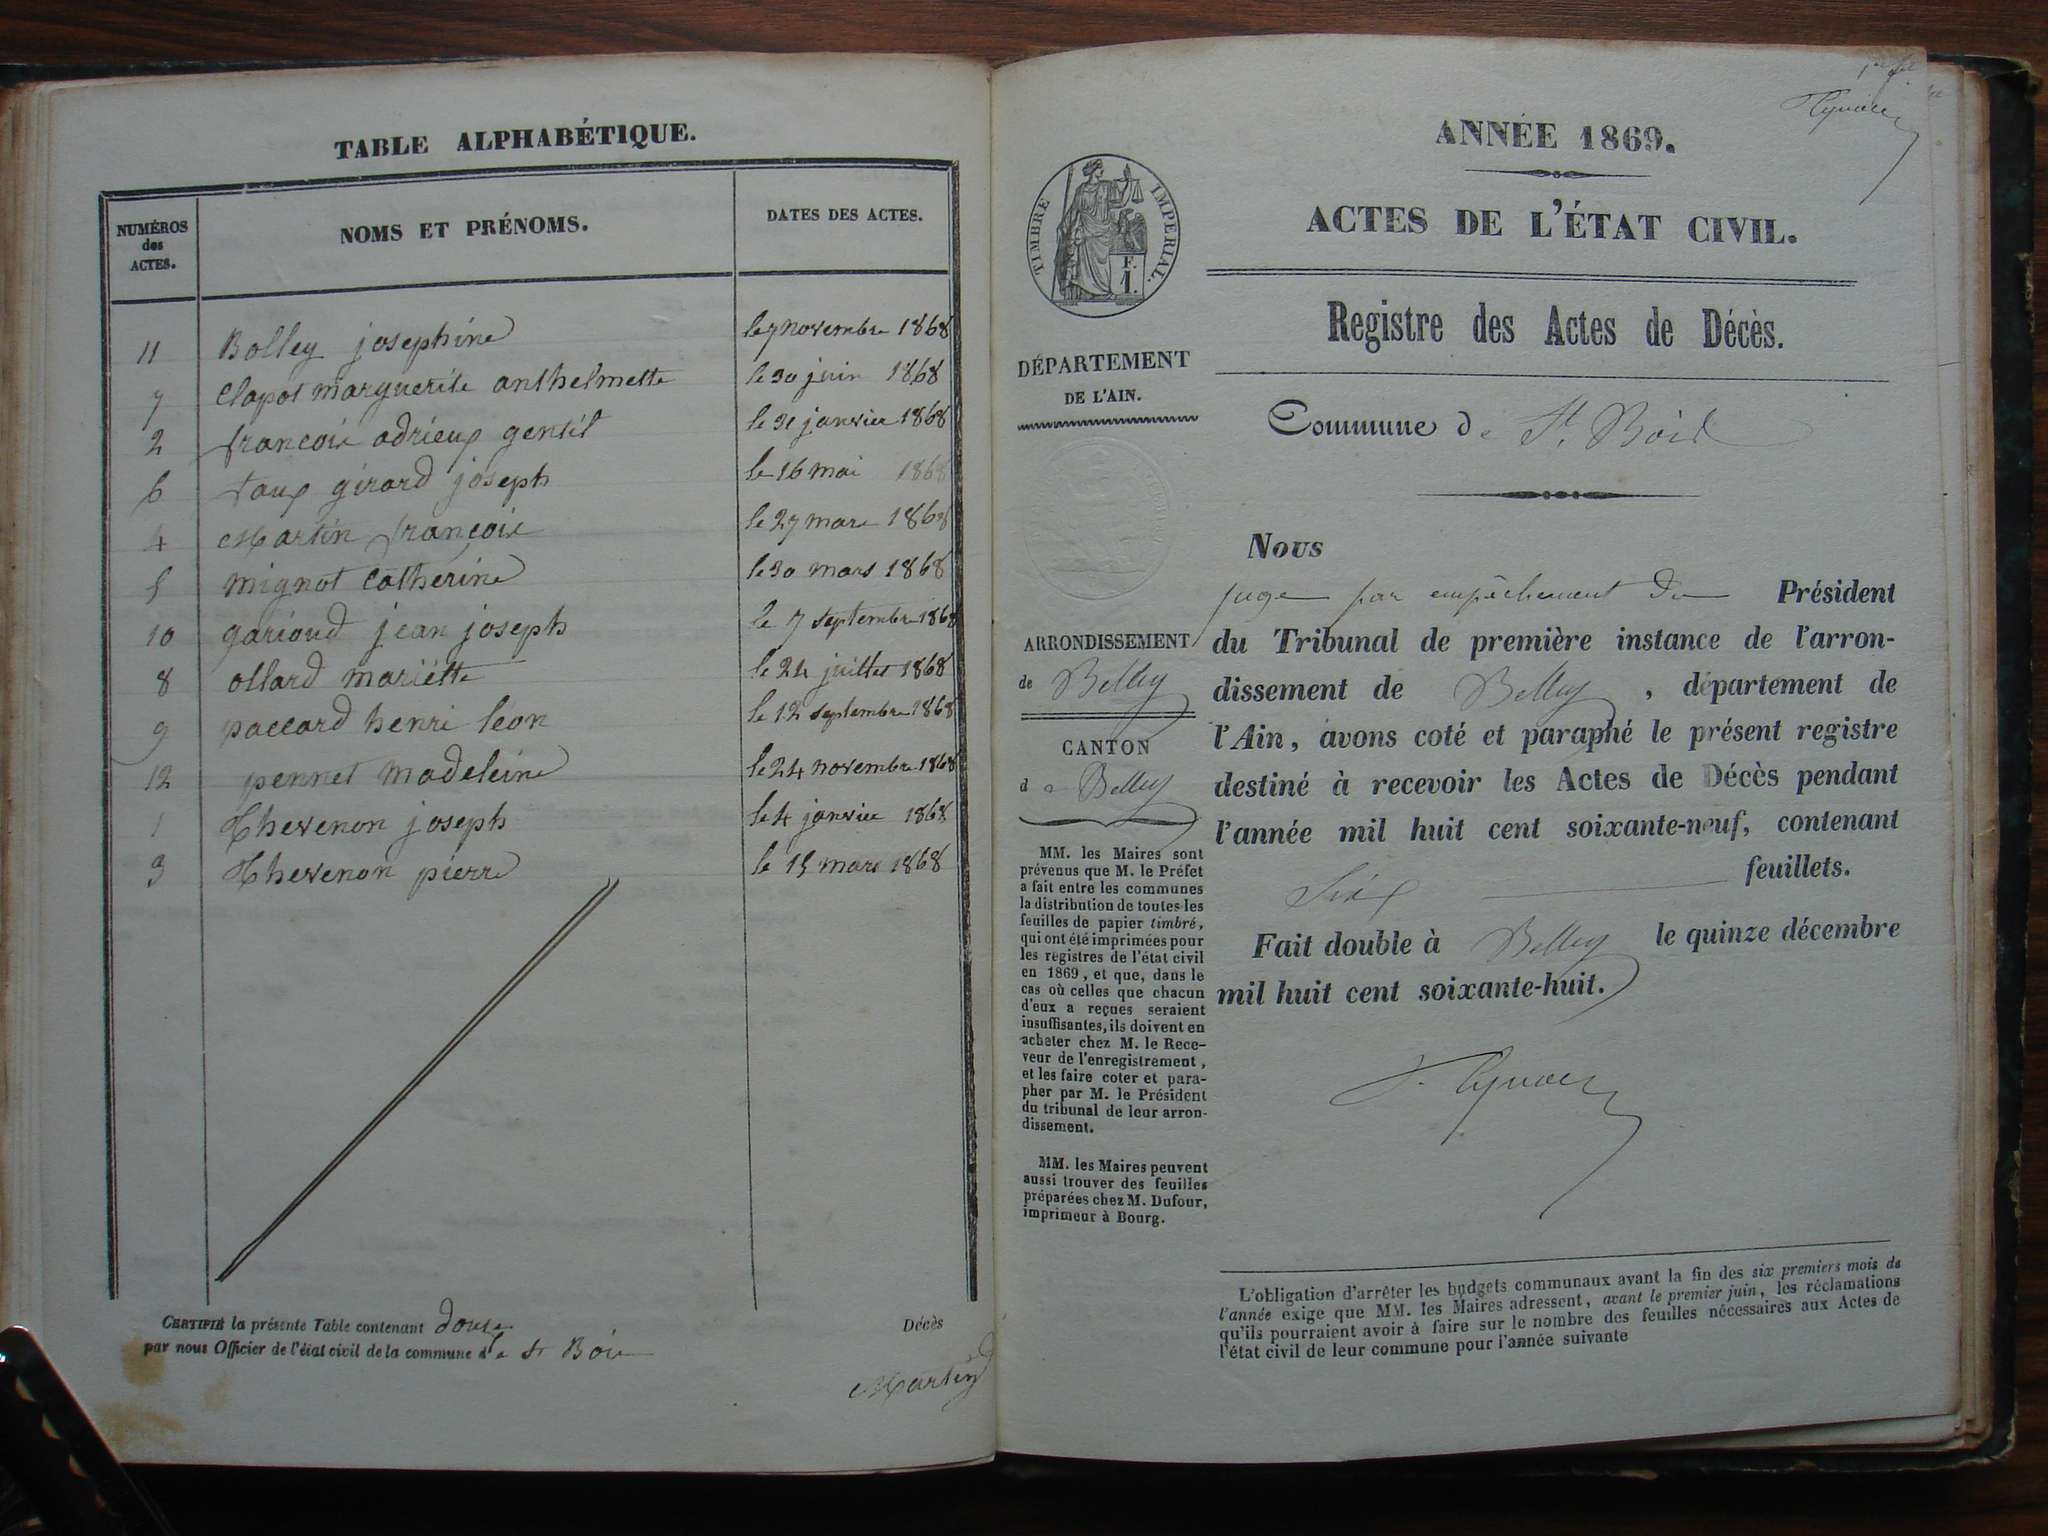 TABLE ALPHABÉTIQUE.
NUMÉROS
des
ACTES.
NOMS ET PRÉNOMS.
DATES DES ACTES.
11 Bolley josephine le 7 novembre 1868
7 Clapot marguerite anthelmette le 30 juin 1868
2 francois adrieux gentil le 31 janvier 1868
6 faux girard joseph le 16 mai 1868
4 Martin françois le 27 mars 1868
5 mignot Catherine le 30 mars 1868
10 garioud jean joseph le 7 septembre 1868
8 ollard mariëtte le 24 juillet 1868
9 paccard henri leon le 12 septembre 1868
12 pennet madeleine le 24 novembre 1868
1 Thevenon joseph le 4 janvier 1868
3 Thevenon pierre le 15 mars 1868
CERTIFIÉ la présente Table contenant douze Décès
par nous Officier de l'état civil de la commune de St Bois
Martin
ANNÉE 1869.
ACTES DE L'ÉTAT CIVIL.
TIMBRE IMPERIAL.
F.
1.
Registre des Actes de Décès.
DÉPARTEMENT
DE L'AIN.
Commune de St. Bois
ARRONDISSEMENT
de Belley
CANTON
de Belley
MM. les Maires sont
prévenus que M. le Préfet
a fait entre les communes
la distribution de toutes les
feuilles de papier timbré,
qui ont été imprimées pour
les registres de l'état civil
en 1869, et que, dans le
cas où celles que chacun
d'eux a reçues seraient
insuffisantes, ils doivent en
acheter chez M. le Rece-
veur de l'enregistrement,
et les faire coter et para-
pher par M. le Président
du tribunal de leur arron-
dissement.
MM. les Maires peuvent
aussi trouver des feuilles
préparées chez M. Dufour,
imprimeur à Bourg.
Nous
juge par empêchement du Président
du Tribunal de première instance de l'arron-
dissement de Belley, département de
l'Ain, avons coté et paraphé le présent registre
destiné à recevoir les Actes de Décès pendant
l'année mil huit cent soixante-neuf, contenant
Six feuillets.
Fait double à Belley le quinze décembre
mil huit cent soixante-huit.
L'obligation d'arrêter les budgets communaux avant la fin des six premiers mois de
l'année exige que MM. les Maires adressent, avant le premier juin, les réclamations
qu'ils pourraient avoir à faire sur le nombre des feuilles nécessaires aux Actes de
l'état civil de leur commune pour l'année suivante